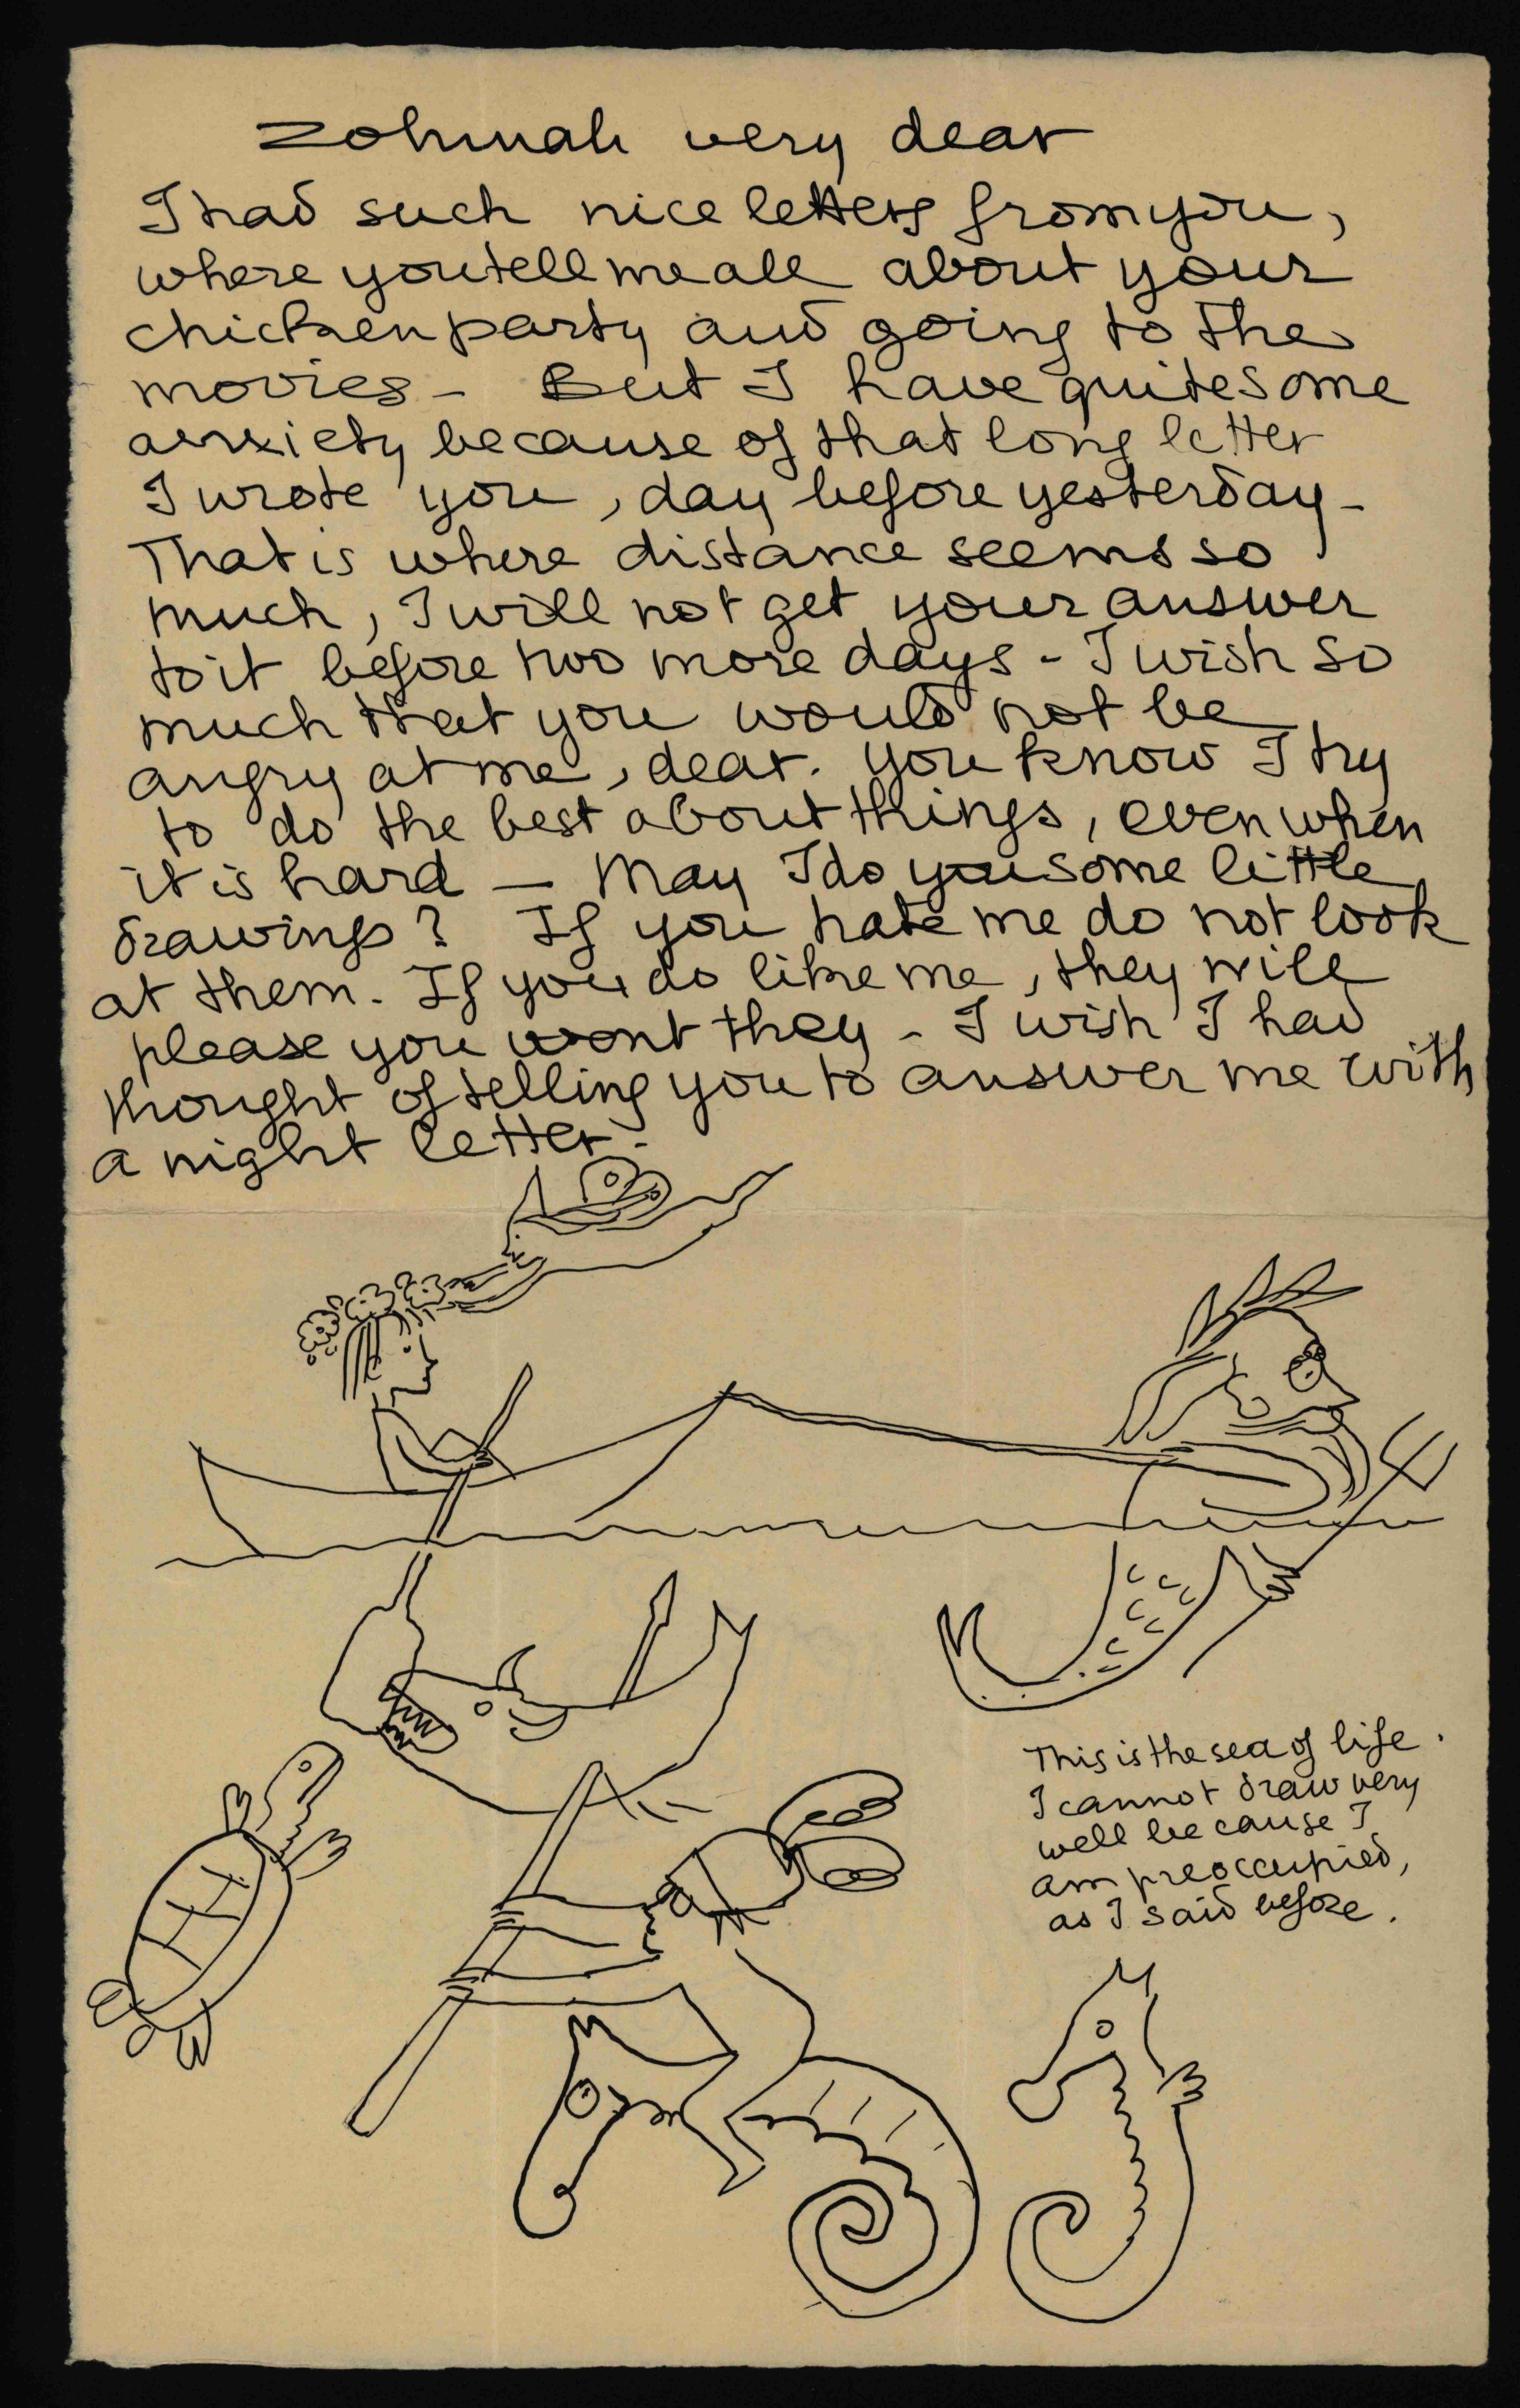 Zohmah very dear
I had such nice letters from you,
where you tell me all about your
chicken party and going to the
movies - But I have quite some
anxiety because of that long letter
I wrote you, day before yesterday -
That is where distance seems so
much, I will not get your answer
to it before two more days - I wish so
much that you would not be
angry at me, dear. You know I try
to do the best about things, even when
it is hard — May I do you some little
drawings? If you hate me do not look
at them. If you do like me, they will
please you wont they - I wish I had
thought of telling you to answer me with
a night letter -
This is the sea of life.
I cannot draw very
well because I
am preoccupied,
as I said before.